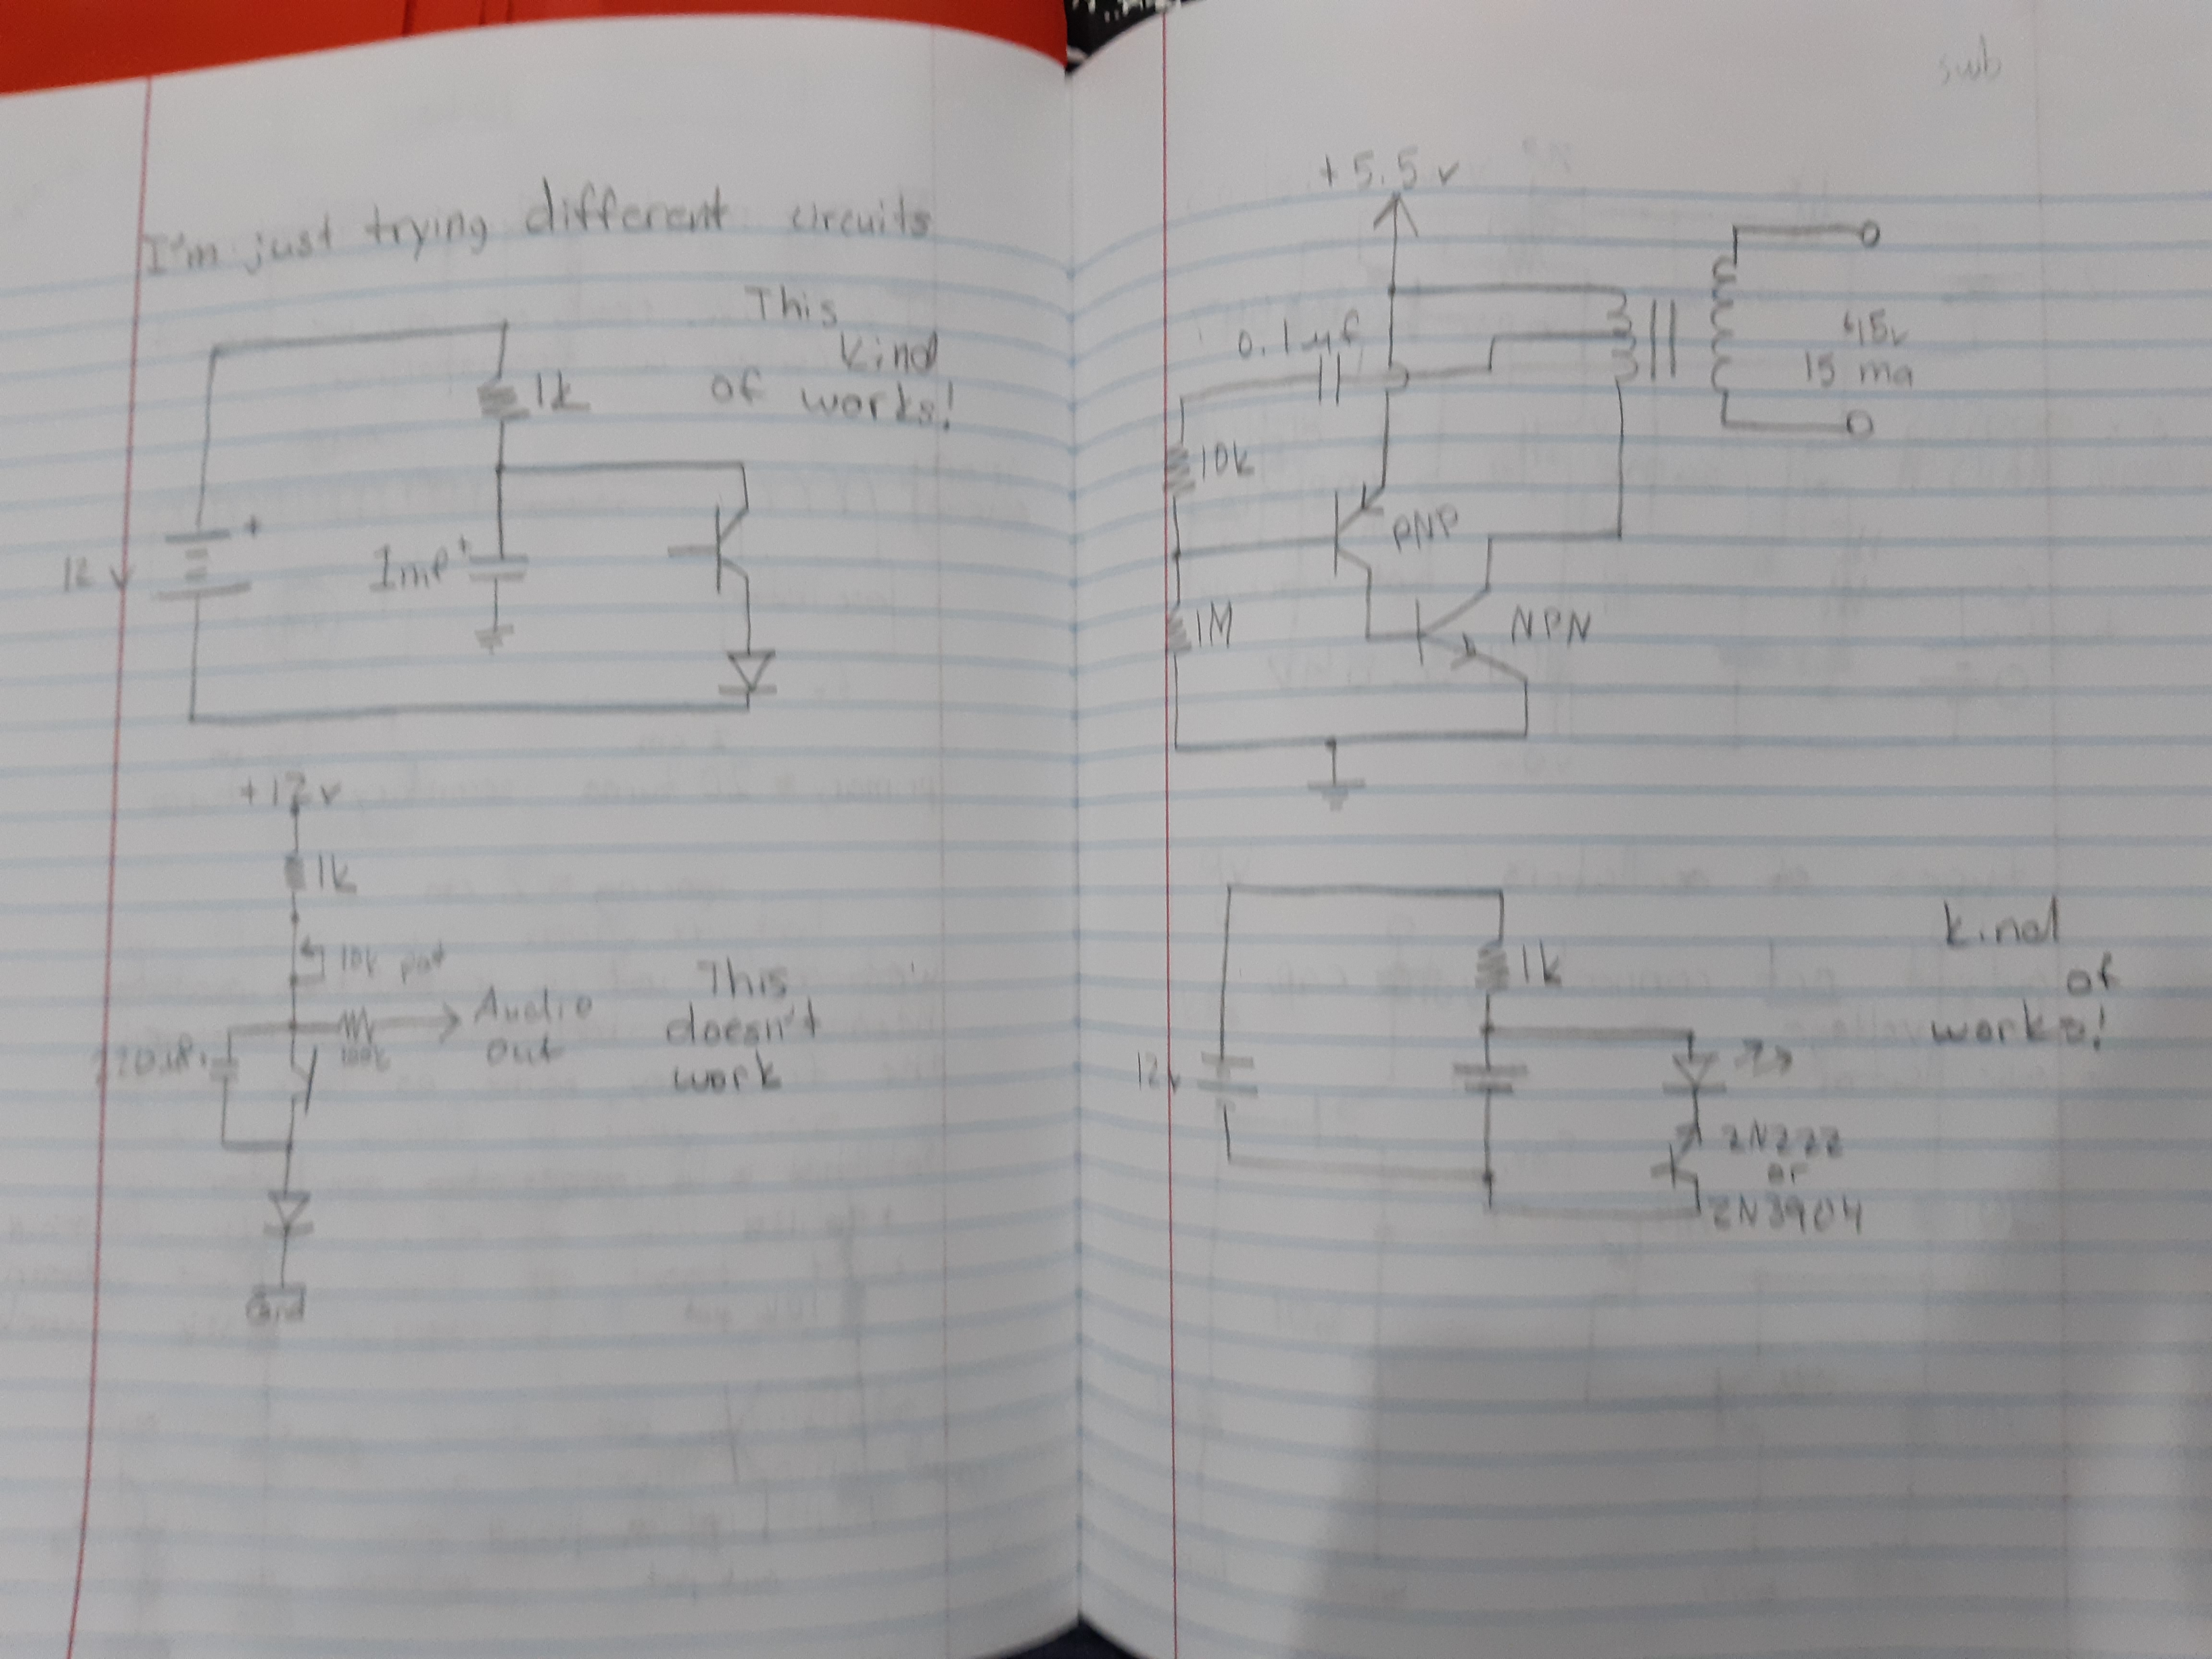 I'm just trying different circuits
This
kind
of works!
1k
+
12 v
1mf +
+12v
1k
10k pot
Audio
out
100k
This
doesn't
work
Gnd
swb
+5.5v
0.1µf
15 ma
10k
PNP
1M
NPN
kind
of
works!
1k
12v
2N222
or
2N3904